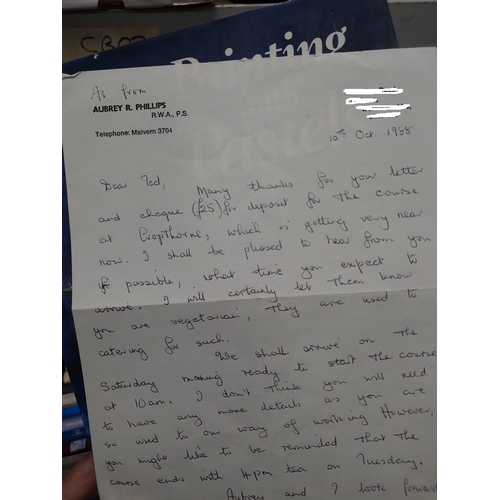 CBO2
Painting
Pastel
As from
AUBREY R. PHILLIPS
R.W.A., P.S.
Telephone: Malvern 3704
10th Oct. 1988
Dear Ted, Many thanks for you letter
and cheque (£25) for deposit for the course
at Cropthorne, which is getting very near
now. I shall be pleased to hear from you
if possible, what time you expect to
arrive. I will certainly let them know
you are vegetarian, they are used to
catering for such.
We shall arrive on the
Saturday making ready to start the course
at 10am. I don't think you will need
to have any more details as you are
so used to our way of working. However,
you might like to be reminded that the
course ends with 4pm tea on Tuesday.
Aubrey and I look forward